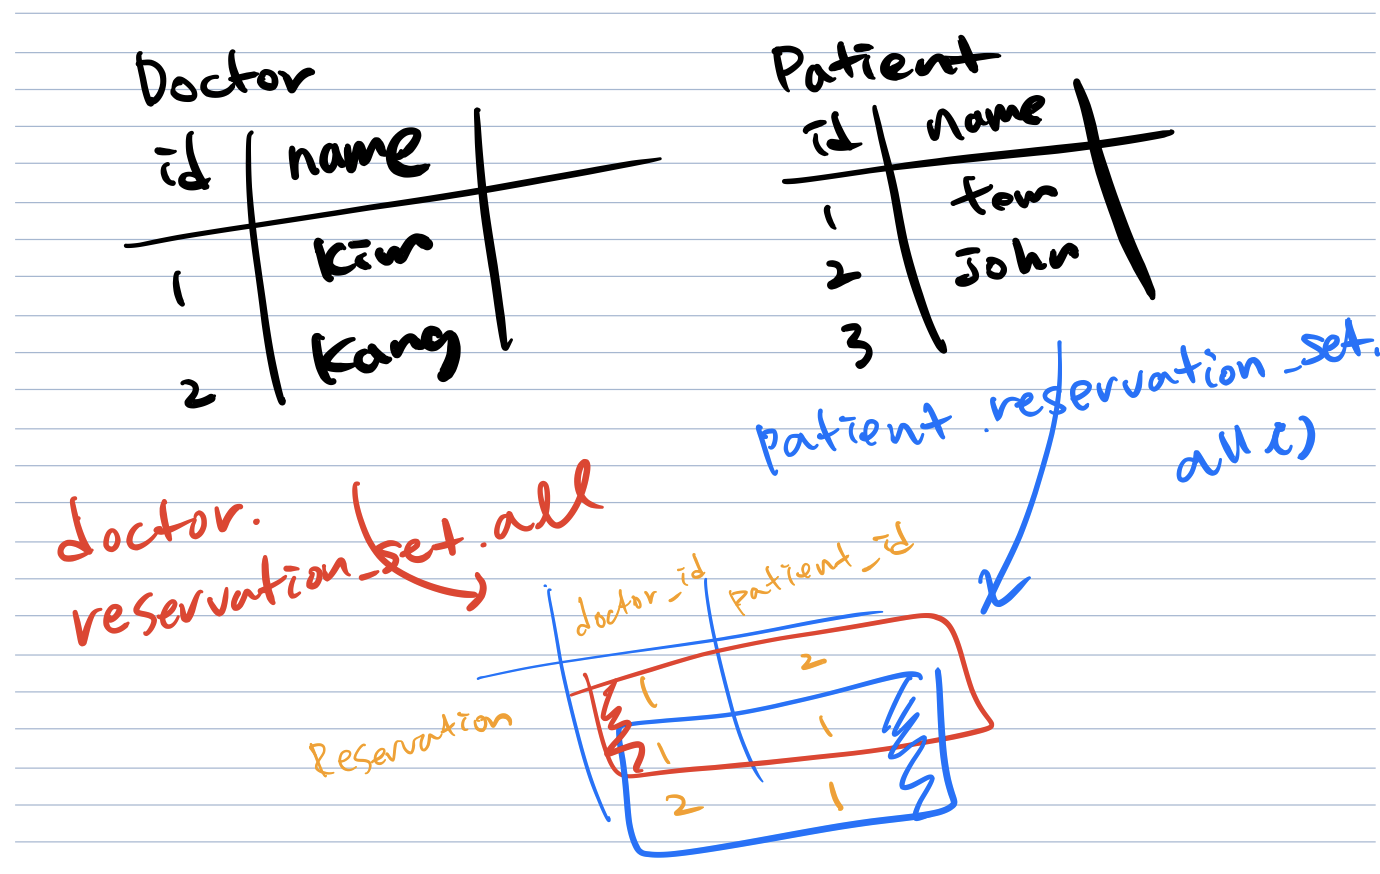 Doctor
id name
1 Kim
2 Kang
Patient
id name
1 tom
2 john
3
patient.reservation_set.
all()
doctor.
reservation_set.all
Reservation
doctor_id patient_id
1 2
1 1
2 1